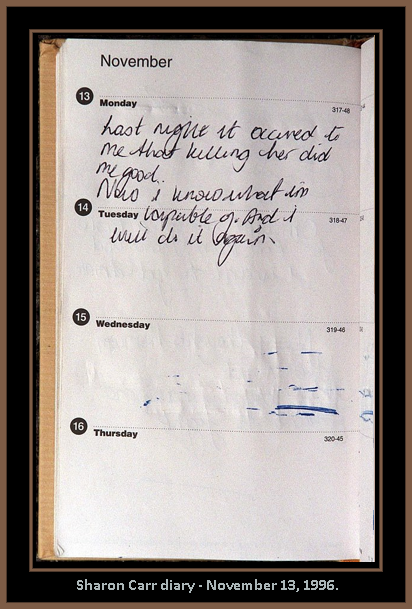 November
13
Monday
317-48
Last night it occured to
me that killing her did
me good.
Now i know what im
14
Tuesday
capable of. And i
318-47
will do it again.
15
Wednesday
319-46
16
Thursday
320-45
Sharon Carr diary - November 13, 1996.